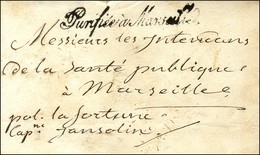 Purifié à Marseille
Messieurs les Intendans
de la Santé publique
à Marseille
pol. la fortune
Cap.ne Jansolin